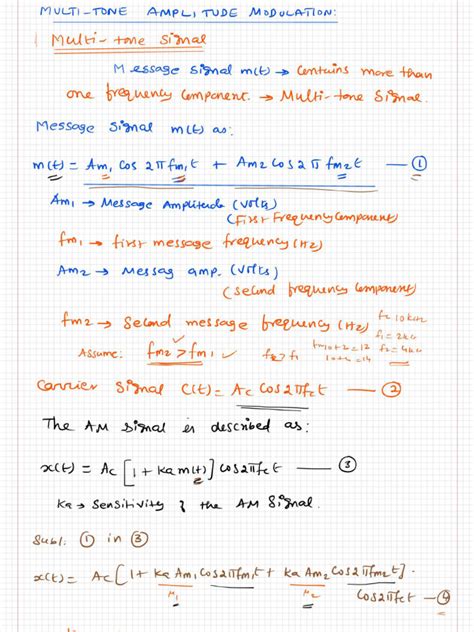 MULTI-TONE AMPLITUDE MODULATION:
Multi-tone Signal
Message signal m(t) → Contains more than
one frequency Component. → Multi-tone Signal.
Message Signal m(t) as:
m(t) = Am1 Cos 2πfm1t + Am2 Cos 2πfm2t — ①
Am1 → Message Amplitude (Volts)
(First Frequency Component)
fm1 → first message frequency (Hz)
Am2 → Messag amp. (Volts)
(Second frequency Component)
fm2 → Second message frequency (Hz)
Assume: fm2 > fm1 ✓
f2 > f1
10+2=12
10+4=14
fc 10kHz
f1 = 2kHz
f2 = 4kHz
Carrier Signal C(t) = Ac Cos2πfct — ②
The AM Signal is described as:
x(t) = Ac[1 + ka m(t)] cos2πfct — ③
ka → Sensitivity of the AM Signal.
Subl. ① in ③
x(t) = Ac[1 + ka Am1 Cos2πfm1t + ka Am2 Cos2πfm2t].
μ1 μ2 Cos2πfct — ④